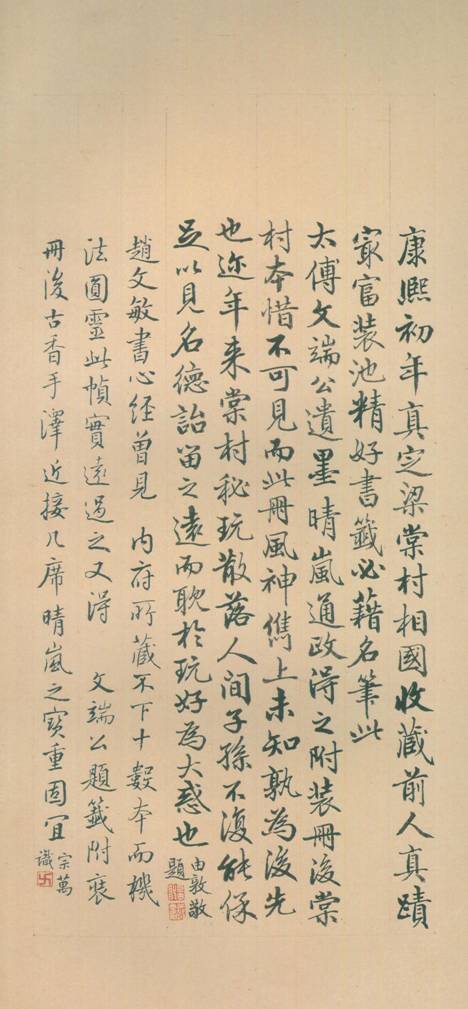 康熙初年真定梁棠村相國收藏前人真蹟
最富裝池精好書籤必藉名筆此
太傅文端公遺墨晴嵐通政得之附裝冊後棠
村本惜不可見而此冊風神儁上未知孰為後先
也迩年来棠村秘玩散落人间子孫不復能保
足以見名德詒留之遠而耽於玩好為大惑也
由敦敬
題
趙文敏書心經曾見 内府所藏不下十數本而機
法圓靈此幀實遠過之又得 文端公題籤附裝
冊後古香手澤近接几席晴嵐之寶重固宜
宗萬
識